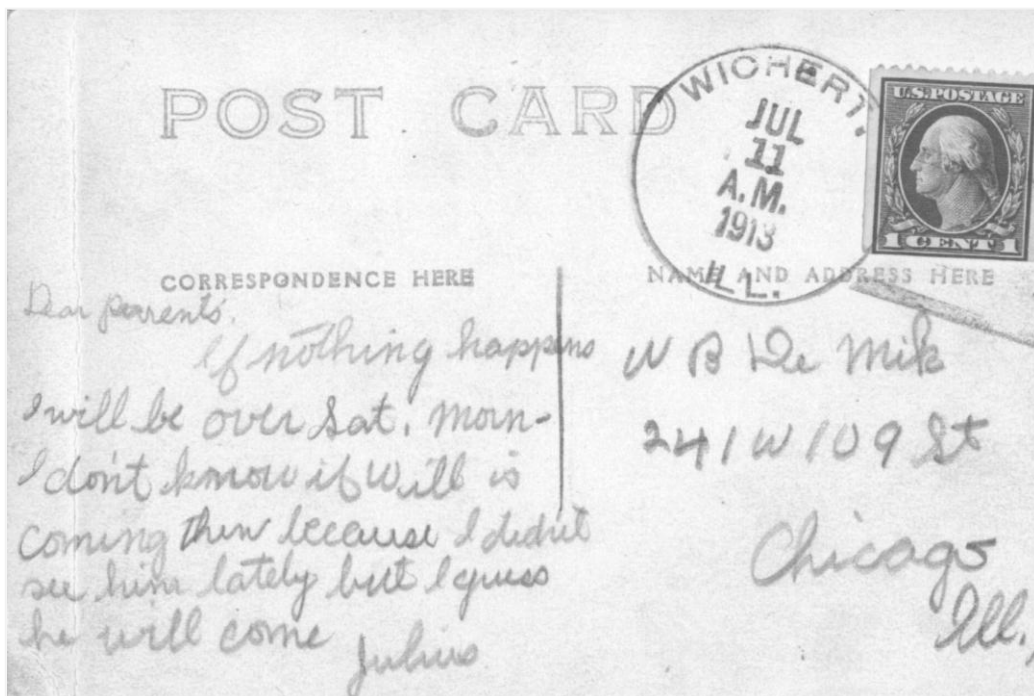 POST CARD
WICHERT.
JUL
11
A.M.
1913
ILL.
U.S. POSTAGE
1 CENT 1
CORRESPONDENCE HERE
Dear parents.
If nothing happens
I will be over Sat. morn-
I don't know if Will is
coming then because I didn't
see him lately but I guess
he will come
Julius
NAME AND ADDRESS HERE
W B De Mik
241 W 109 St
Chicago
Ill.